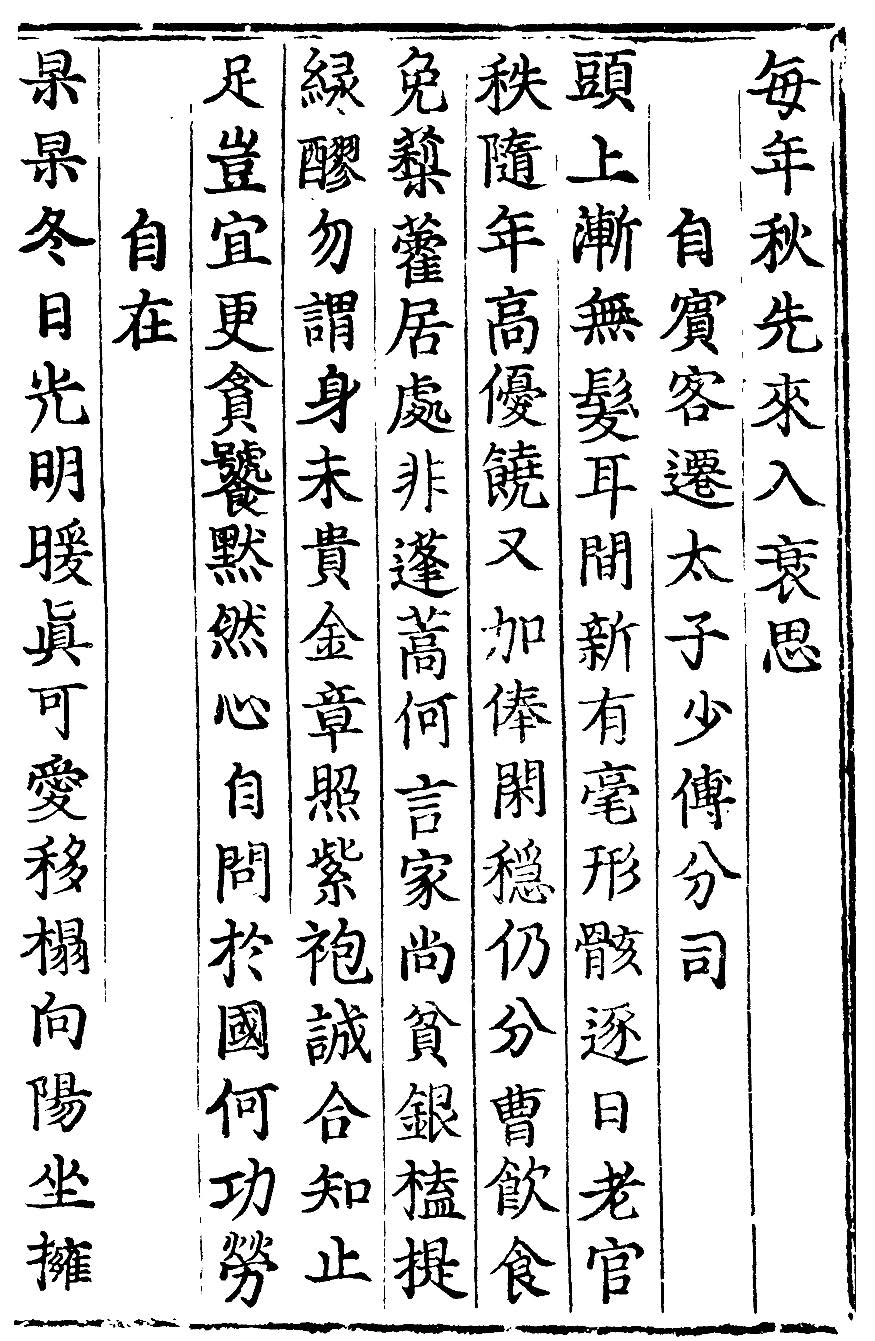 每年秋先來入衰思
自賓客遷太子少傅分司
頭上漸無髮耳間新有毫形骸逐日老官
秩隨年高優饒又加俸閑穩仍分曹飲食
免藜藿居處非蓬蒿何言家尚貧銀榼提
緑醪勿謂身未貴金章照紫袍誠合知止
足豈宜更貪饕默然心自問於國何功勞
自在
杲杲冬日光明暖眞可愛移榻向陽坐擁